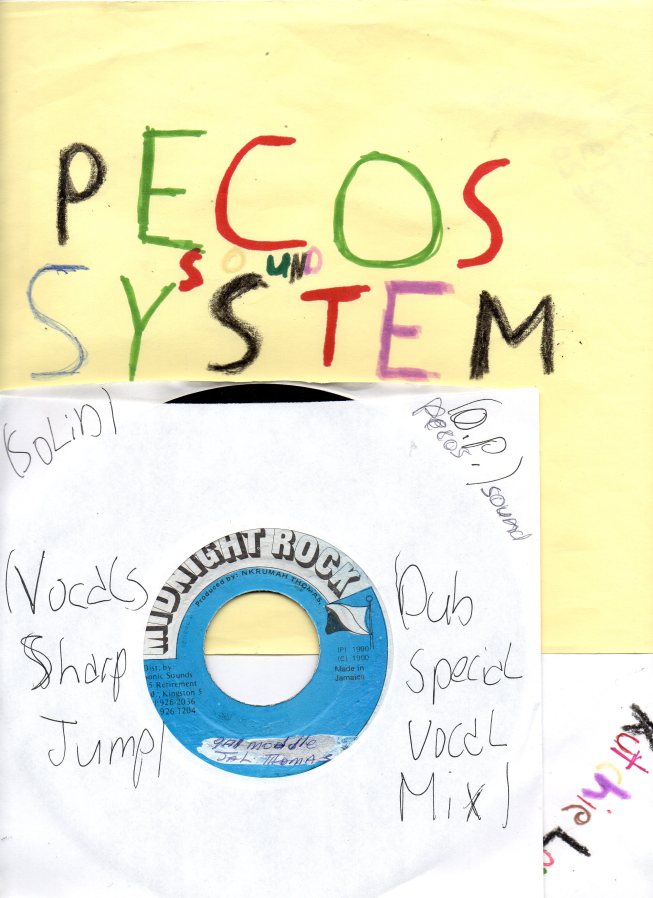 PECOS
SOUND
SYSTEM
(SOLID)
(D.P.)
Pecos
sound
(Vocals
Sharp
Jump)
MIDNIGHT ROCK
Produced by: NKRUMAH THOMAS.
(P) 1990
(C) 1990
Made in
Jamaica
Dist. by
onic Sounds
5 Retirement
d., Kingston 5
926-2036
926-1204
gal moddle
JAH THOMAS
Dub
special
vocal
Mix)
Kutchie